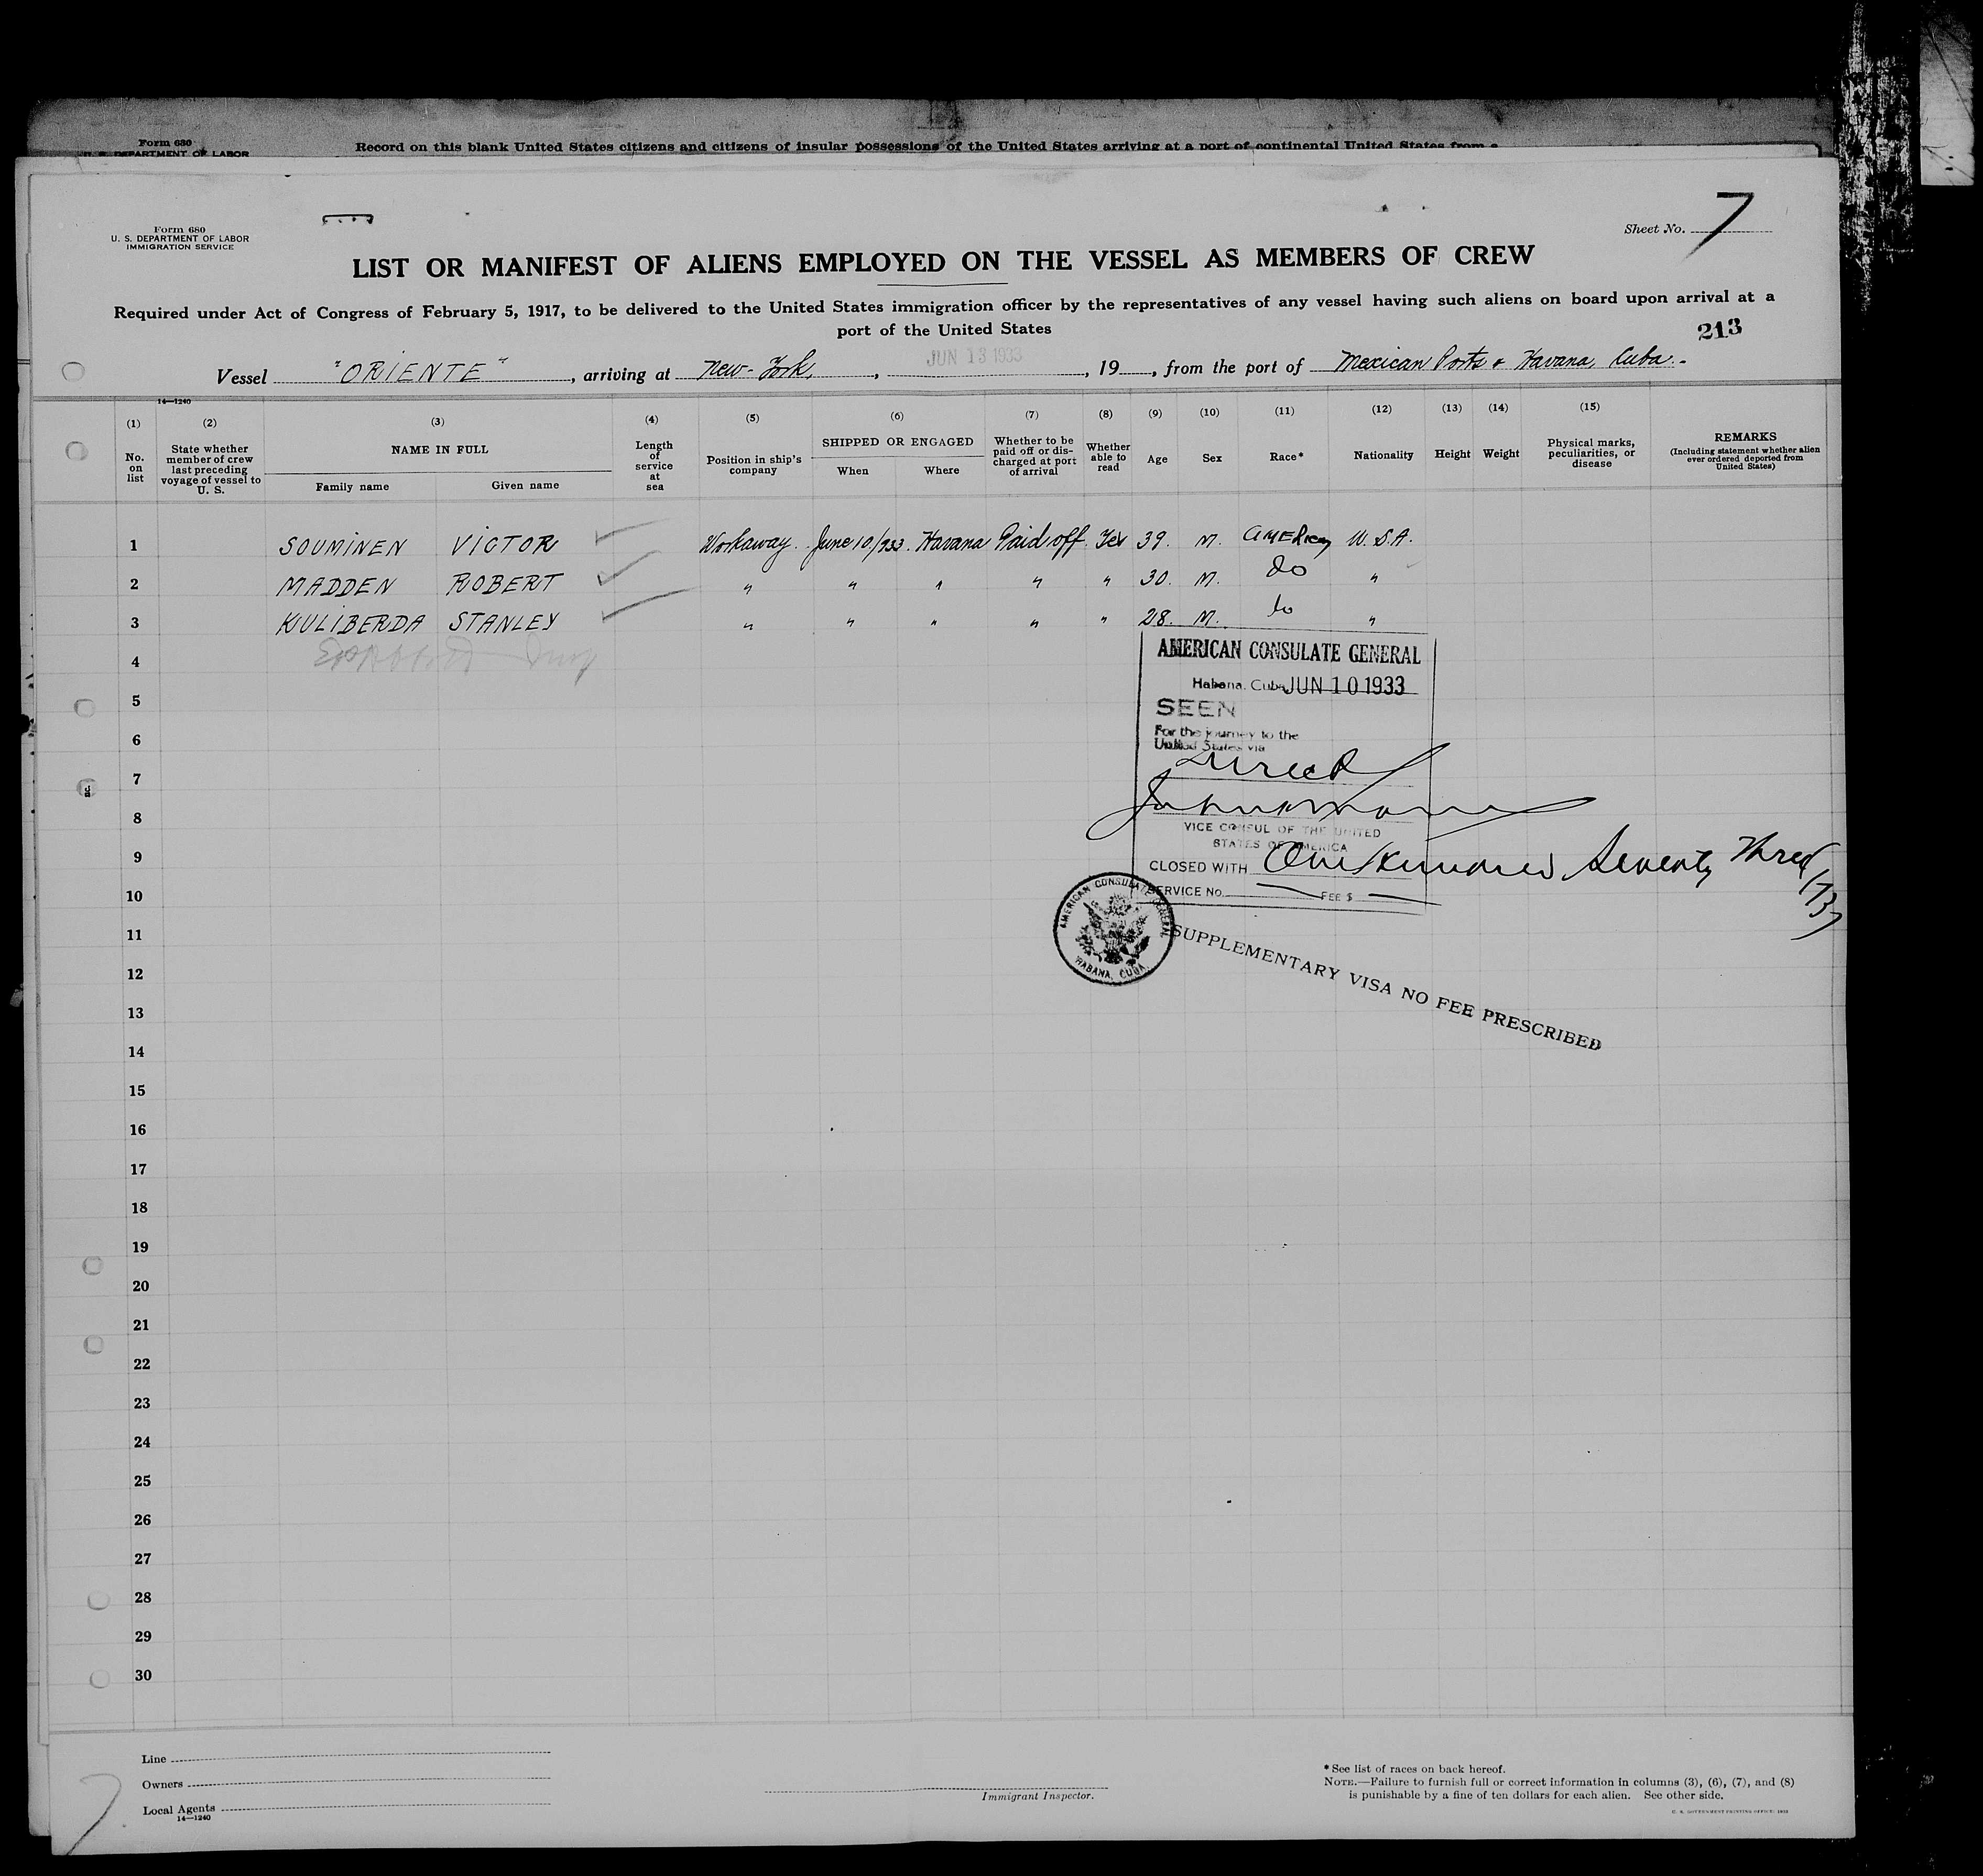 Form 680
U. S. DEPARTMENT OF LABOR
Record on this blank United States citizens and citizens of insular possessions of the United States arriving at a port of continental United States from a
Form 680
U. S. DEPARTMENT OF LABOR
IMMIGRATION SERVICE
Sheet No. 7
LIST OR MANIFEST OF ALIENS EMPLOYED ON THE VESSEL AS MEMBERS OF CREW
Required under Act of Congress of February 5, 1917, to be delivered to the United States immigration officer by the representatives of any vessel having such aliens on board upon arrival at a
port of the United States
213
Vessel "ORIENTE", arriving at New-York, JUN 13 1933, 19, from the port of Mexican Ports & Havana, Cuba.-
14—1240
(1) (2) (3) (4) (5) (6) (7) (8) (9) (10) (11) (12) (13) (14) (15)
No. on list
State whether member of crew last preceding voyage of vessel to U. S.
NAME IN FULL
Family name
Given name
Length of service at sea
Position in ship's company
SHIPPED OR ENGAGED
When
Where
Whether to be paid off or discharged at port of arrival
Whether able to read
Age
Sex
Race*
Nationality
Height
Weight
Physical marks, peculiarities, or disease
REMARKS
(Including statement whether alien ever ordered deported from United States)
1 SOUMINEN VICTOR Workaway. June 10/933. Havana Paid off. Yes 39. M. AMERican U.S.A.
2 MADDEN ROBERT " " " " " 30. M. do "
3 KULIBERDA STANLEY " " " " " 28. M. do "
4
5
6
7
8
9
10
11
12
13
14
15
16
17
18
19
20
21
22
23
24
25
26
27
28
29
30
AMERICAN CONSULATE GENERAL
Habana, Cuba JUN 10 1933
SEEN
For the journey to the
United States via
Direct
VICE CONSUL OF THE UNITED
STATES OF AMERICA
CLOSED WITH One Hundred Seventy Three
173
SERVICE No. FEE $
AMERICAN CONSULATE GENERAL
HABANA, CUBA
SUPPLEMENTARY VISA NO FEE PRESCRIBED
Line
Owners
Local Agents
14—1240
Immigrant Inspector.
* See list of races on back hereof.
NOTE.—Failure to furnish full or correct information in columns (3), (6), (7), and (8)
is punishable by a fine of ten dollars for each alien. See other side.